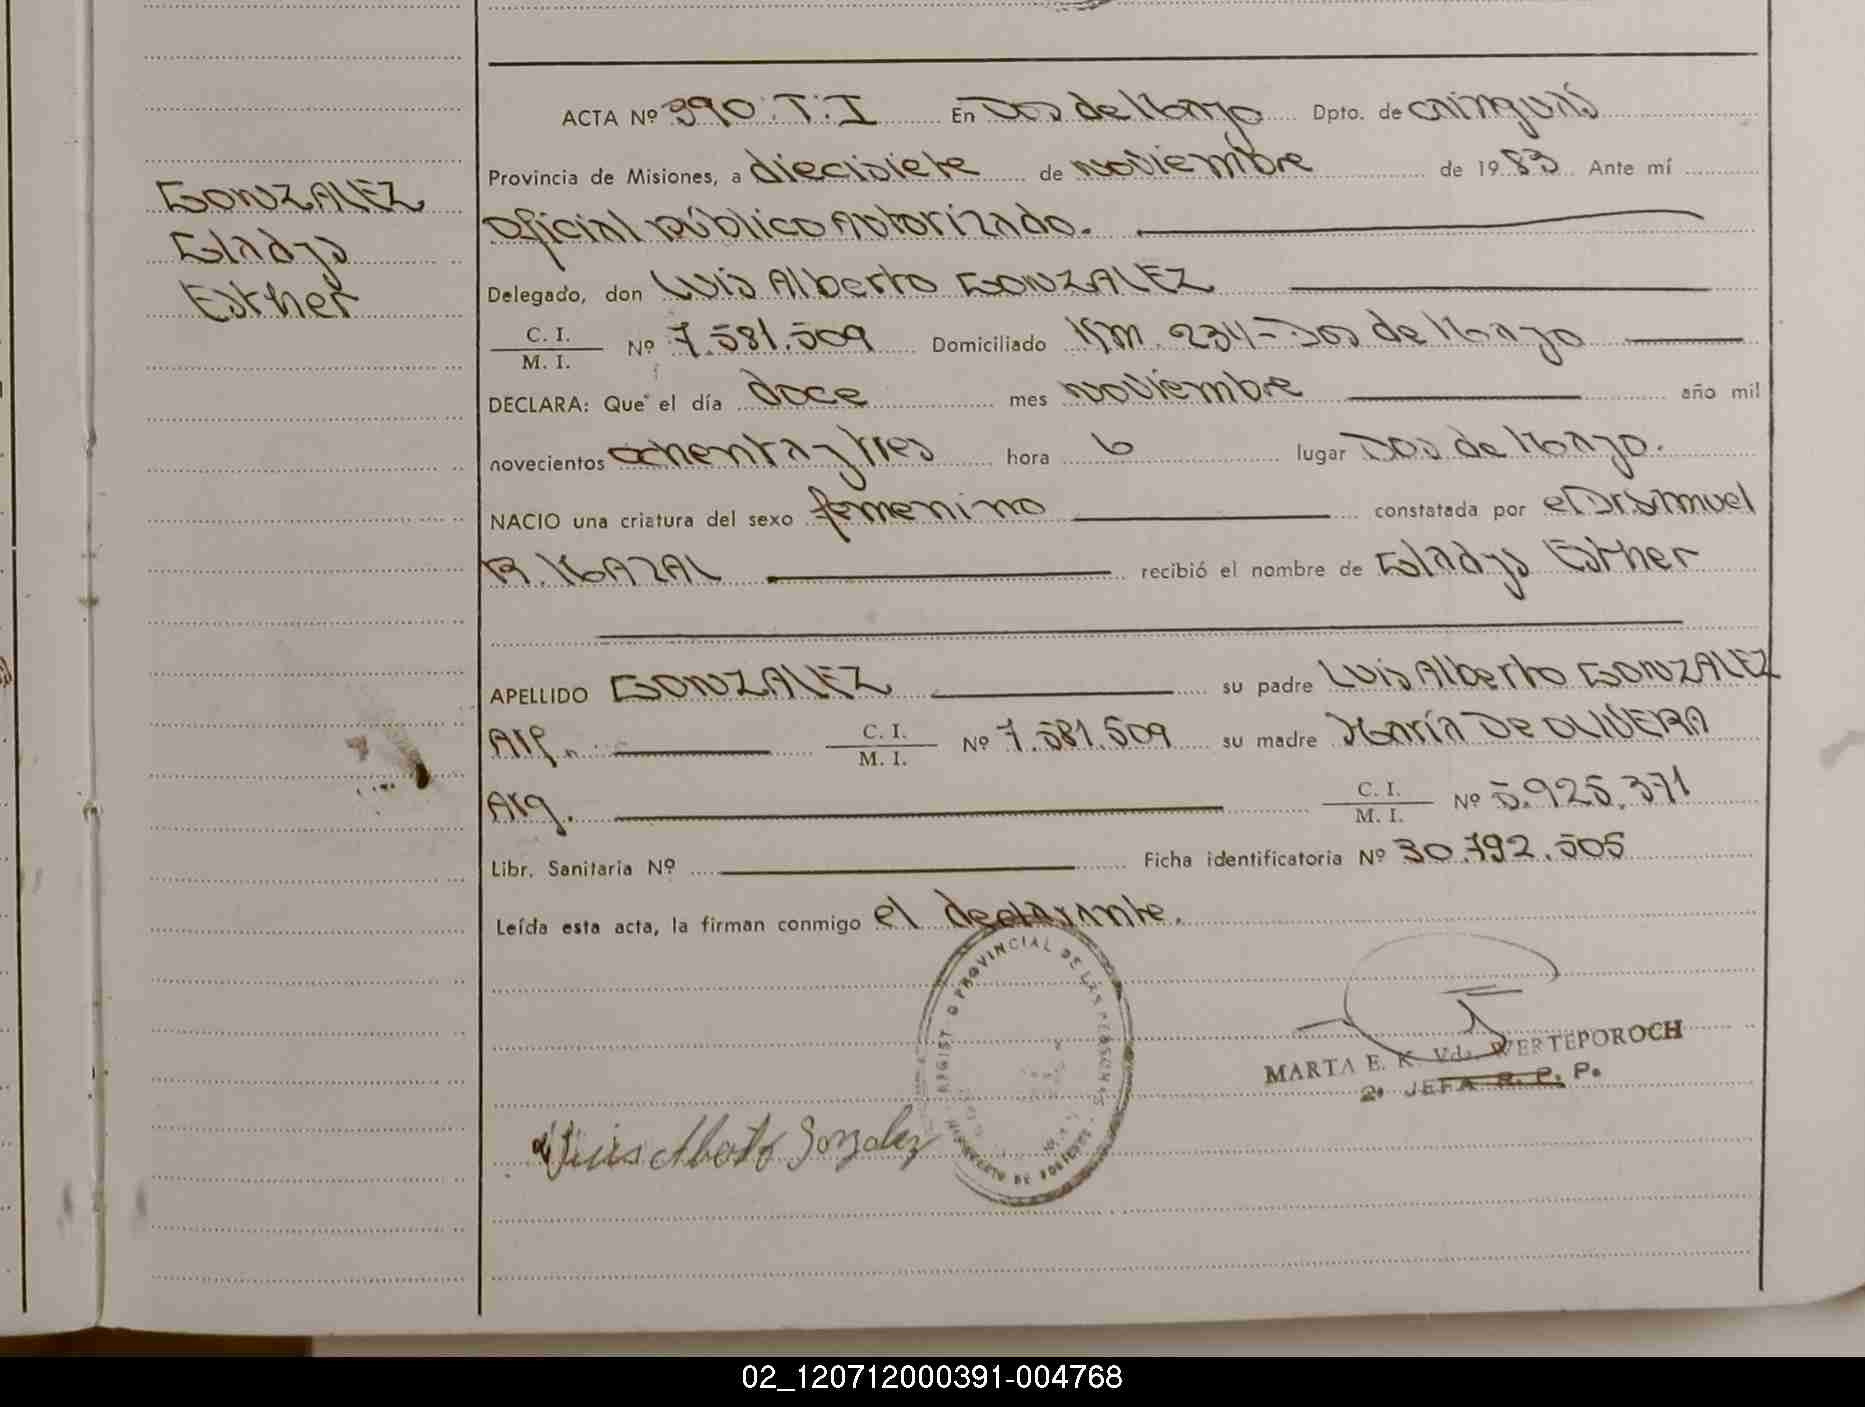 ACTA Nº 390. T. I En Dos de Mayo Dpto. de cainguás
Provincia de Misiones, a diecisiete de noviembre de 1983. Ante mí
GONZALEZ
oficial público autorizado.
Gladys
Delegado, don Luis Alberto GONZALEZ
Esther
C. I.
M. I. Nº 7.581.509 Domiciliado Km. 234-Dos de Mayo
DECLARA: Que el día doce mes noviembre año mil
novecientos ochenta y tres hora 6 lugar Dos de Mayo.
NACIO una criatura del sexo femenino constatada por el Dr. Samuel
recibió el nombre de Gladys Esther
APELLIDO GONZALEZ su padre Luis Alberto GONZALEZ
C. I.
M. I. Nº 7.581.509 su madre María De OLIVEIRA
Arg. C. I.
M. I. Nº 5.925.371
Libr. Sanitaria Nº Ficha identificatoria Nº 30.792.505
Leída esta acta, la firman conmigo el declarante.
REGISTRO PROVINCIAL DE LAS PERSONAS
MARTA E. K. Vda. WERTEPOROCH
2ª JEFA R. P. P.
Luis Alberto Gonzalez
02_120712000391-004768